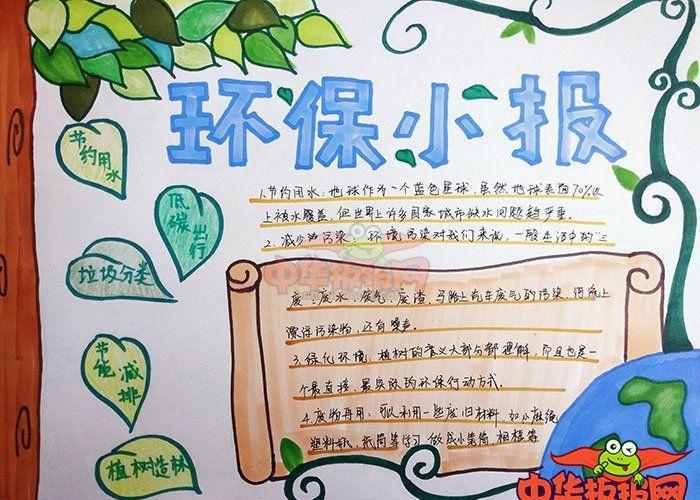 环保小报
节约用水
低碳出行
垃圾分类
节能减排
植树造林
1.节约用水:地球作为一个蓝色星球,虽然地球表面70%以
上被水覆盖,但世界上许多国家城市缺水问题趋严重。
2.减少污染:环境污染对我们来说,一般生活中的"三
废":废水、废气、废渣,马路上汽车废气的污染,河流上
漂浮污染物,还有噪声。
3.绿化环境:植树的意义大部分都理解,而且也是一
个最直接、最实际的环保行动方式。
4.废物再用:可以利用一些废旧材料,如小麻绳
塑料纸、纸筒等学习做成小装饰、相框等
中华板报网
中华板报网